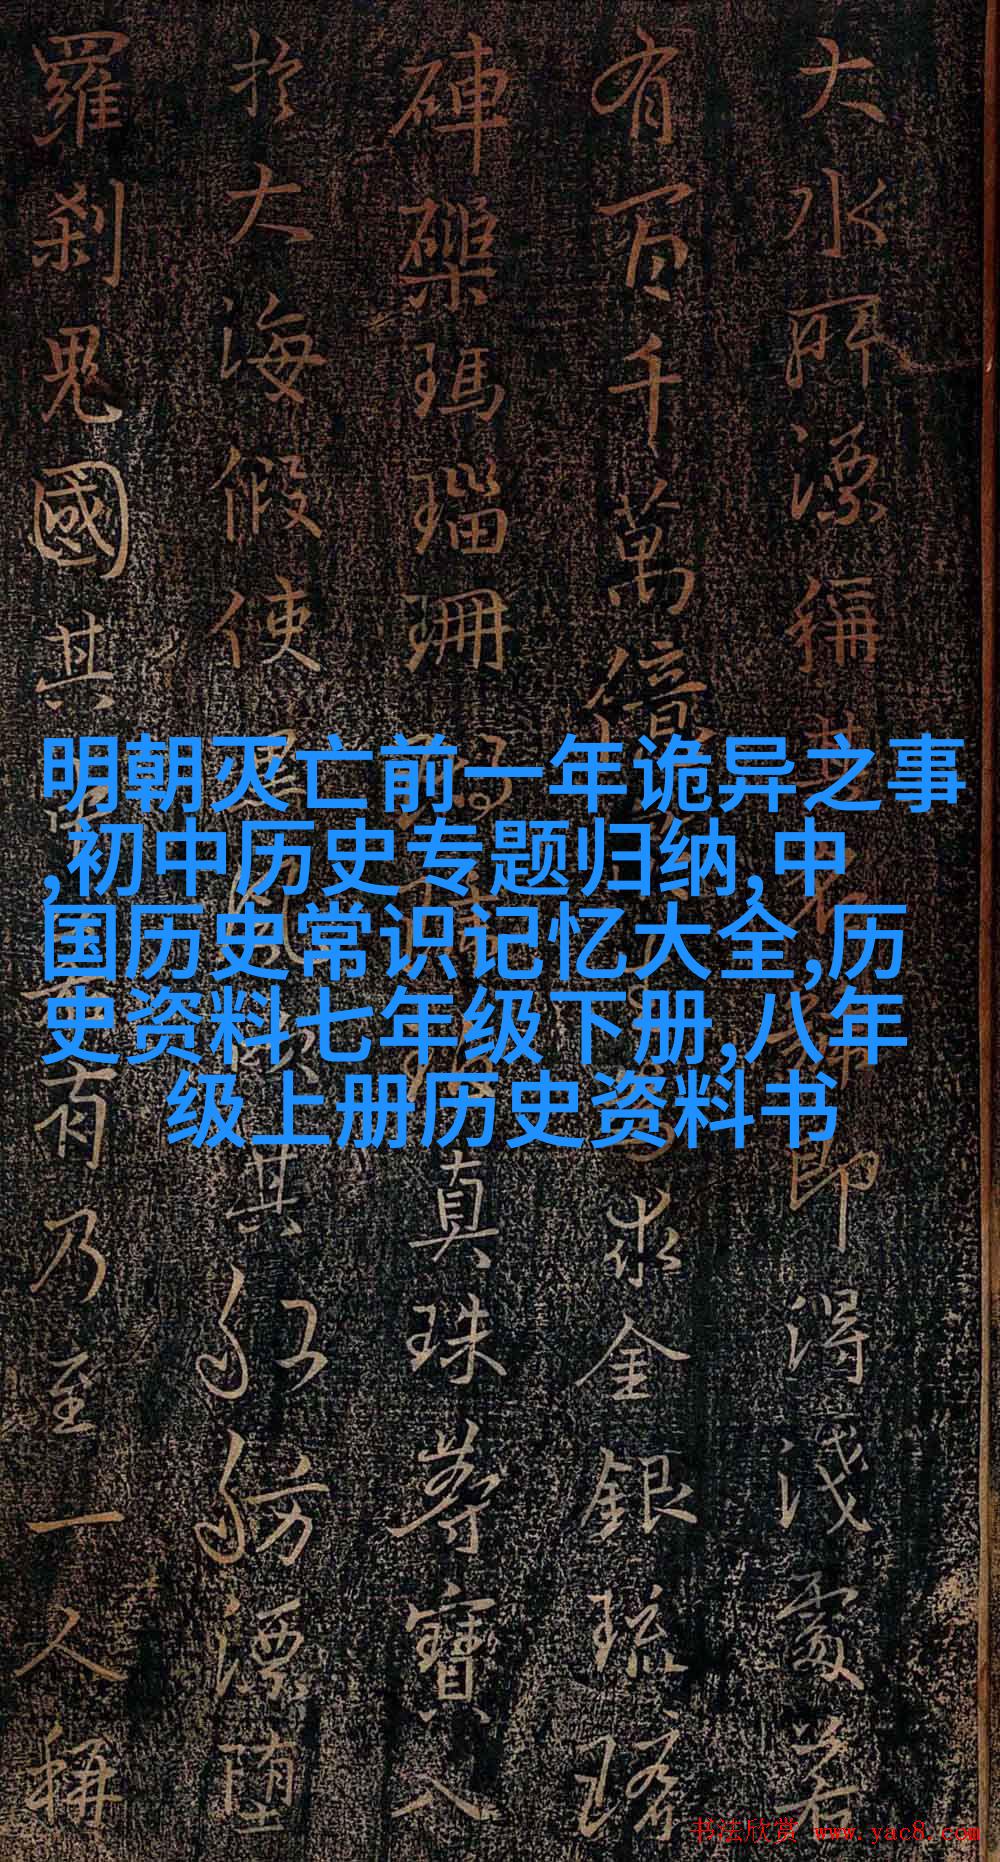 大水所漂稱其即得淺處若
有百千萬億求金銀琉璃
硨磲瑪瑙珊真珠等寶入
於大海假使其舡舫漂墮
羅剎鬼國其有乃至一人稱
明朝灭亡前一年诡异之事
,初中历史专题归纳,中
国历史常识记忆大全,历
史资料七年级下册,八年
级上册历史资料书
书法欣赏 www.yac8.com